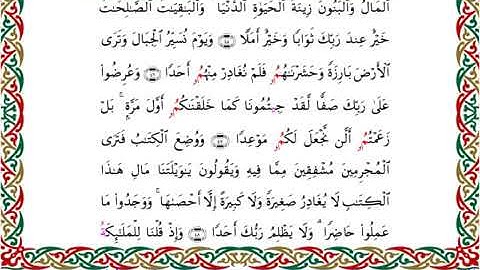 ٱلْمَالُ وَٱلْبَنُونَ زِينَةُ ٱلْحَيَوٰةِ ٱلدُّنْيَا وَٱلْبَٰقِيَٰتُ ٱلصَّٰلِحَٰتُ
خَيْرٌ عِندَ رَبِّكَ ثَوَابًا وَخَيْرٌ أَمَلًا ۝ وَيَوْمَ نُسَيِّرُ ٱلْجِبَالَ وَتَرَى
ٱلْأَرْضَ بَارِزَةً وَحَشَرْنَٰهُمُۥ فَلَمْ نُغَادِرْ مِنْهُمُۥ أَحَدًا ۝ وَعُرِضُوا۟
عَلَىٰ رَبِّكَ صَفًّا لَّقَدْ جِيتُمُونَا كَمَا خَلَقْنَٰكُمُۥ أَوَّلَ مَرَّةٍۭ ۚ بَلْ
زَعَمْتُمُۥ أَلَّن نَّجْعَلَ لَكُمُۥ مَوْعِدًا ۝ وَوُضِعَ ٱلْكِتَٰبُ فَتَرَى
ٱلْمُجْرِمِينَ مُشْفِقِينَ مِمَّا فِيهِ وَيَقُولُونَ يَٰوَيْلَتَنَا مَالِ هَٰذَا
ٱلْكِتَٰبِ لَا يُغَادِرُ صَغِيرَةً وَلَا كَبِيرَةً إِلَّا أَحْصَىٰهَا ۚ وَوَجَدُوا۟ مَا
عَمِلُوا۟ حَاضِرًا ۗ وَلَا يَظْلِمُ رَبُّكَ أَحَدًا ۝ وَإِذْ قُلْنَا لِلْمَلَٰٓئِكَةِ